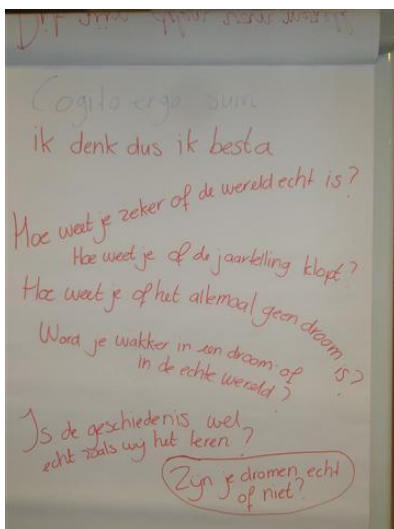 Cogito ergo sum
ik denk dus ik besta
Hoe weet je zeker of de wereld echt is?
Hoe weet je of de jaartelling klopt?
Hoe weet je of het allemaal geen droom is?
Word je wakker in een droom of
in de echte wereld?
Is de geschiedenis wel
echt zoals wij het leren?
Zijn je dromen echt
of niet?